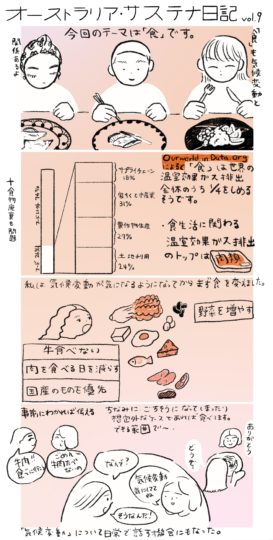 オーストラリア・サステナ日記 vol.9
今回のテーマは「食」です。
「食」も気候変動と
関係あるよ
Our world in Data.org
によると「食」は世界の
温室効果ガス排出
全体のうち1/4をしめる
そうです。
サプライチェーン
18%
31%
農作物生産
27%
土地利用
24%
+食物廃棄も問題
・食生活に関わる
温室効果ガス排出
のトップは肉類
私は気候変動が気になるようになってからまず食を変えました。
野菜を増やす
牛食べない
肉を食べる日を減らす
国産のものを優先
事前にわかれば伝える
ちなみに、ごちそうになってしまったり
想定外なケースであれば食べます。
できる範囲で〜。
牛肉
食べられない
ごめん
なんで?
気候変動
気にしててね
そうなんだ!
どうぞ
ありがとう
「気候変動」について日常で話す機会にもなった。